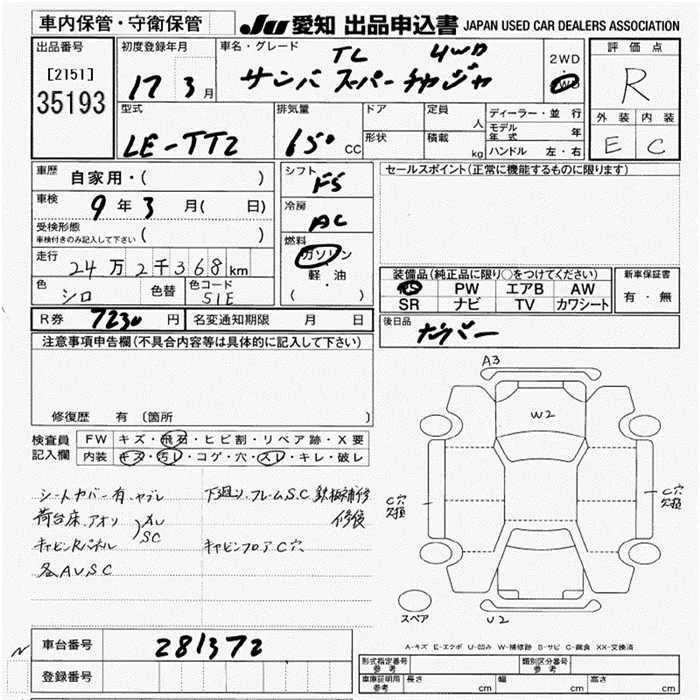 車内保管・守衛保管
JU 愛知 出品申込書 JAPAN USED CAR DEALERS ASSOCIATION
出品番号
[2151]
35193
初度登録年月
17 3 月
車名・グレード
TL 4WD
サンバ スーパーチャジャ
2WD
4WD
評価点
R
外装 内装
E C
型式
LE-TT2
排気量
650 CC
ドア
形状
定員
人
積載
kg
ディーラー・並行
モデル年式 年
ハンドル 左・右
車歴
自家用・( )
車検
9 年 3 月( 日)
受検形態
車検付きのみ記入して下さい ( )
走行
24万2千368km
色
シロ
色替
色コード
51E
シフト
F5
冷房
AC
燃料
ガソリン
軽 油
( )
セールスポイント(正常に機能するものに限ります)
装備品(純正品に限り○をつけてください)
PS PW エアB AW
SR ナビ TV カワシート
新車保証書
有・無
R券 7230 円
名変通知期限 月 日
後日品
ナンバー
注意事項申告欄(不具合内容等は具体的に記入して下さい)
修復歴 有 〔箇所 〕
検査員
記入欄
FW キズ・飛石・ヒビ割・リペア跡・X要
内装 キズ・汚レ・コゲ・穴・スレ・キレ・破レ
シートカバー有、ヤブレ
荷台床、アオリ
キャビンRパネル
各AUSC
下廻り、フレームS.C 鉄板補修
修後
キャビンフロアC穴
A3
W2
C穴
欠損
C穴
欠損
スペア
U2
A-キズ E-エクボ U-凹み W-補修跡 S-サビ C-腐食 XX-交換済
車台番号
281372
登録番号
型式指定番号
参考
類別区分番号
参考
車庫証明用
参考
長さ cm
幅 cm
高さ cm